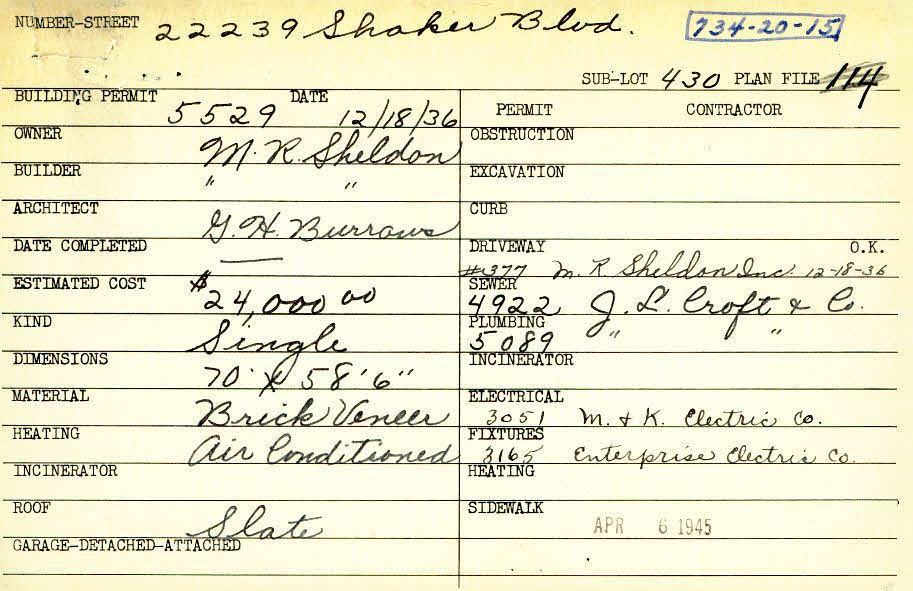 NUMBER-STREET 22239 Shaker Blvd. 734-20-15
SUB-LOT 430 PLAN FILE 114
BUILDING PERMIT 5529 DATE 12/18/36
PERMIT CONTRACTOR
OWNER M. R. Sheldon
OBSTRUCTION
BUILDER " "
EXCAVATION
ARCHITECT G. H. Burrows
CURB
DATE COMPLETED —
DRIVEWAY O.K.
#377 M. R. Sheldon Inc. 12-18-36
ESTIMATED COST $24,000 00
SEWER 4922 J. L. Croft & Co.
KIND Single
PLUMBING 5089 " "
DIMENSIONS 70' X 58'6"
INCINERATOR
MATERIAL Brick Veneer
ELECTRICAL 3051 M. & K. Electric Co.
HEATING Air Conditioned
FIXTURES 3165 Enterprise Electric Co.
INCINERATOR
HEATING
ROOF Slate
SIDEWALK APR 6 1945
GARAGE-DETACHED-ATTACHED